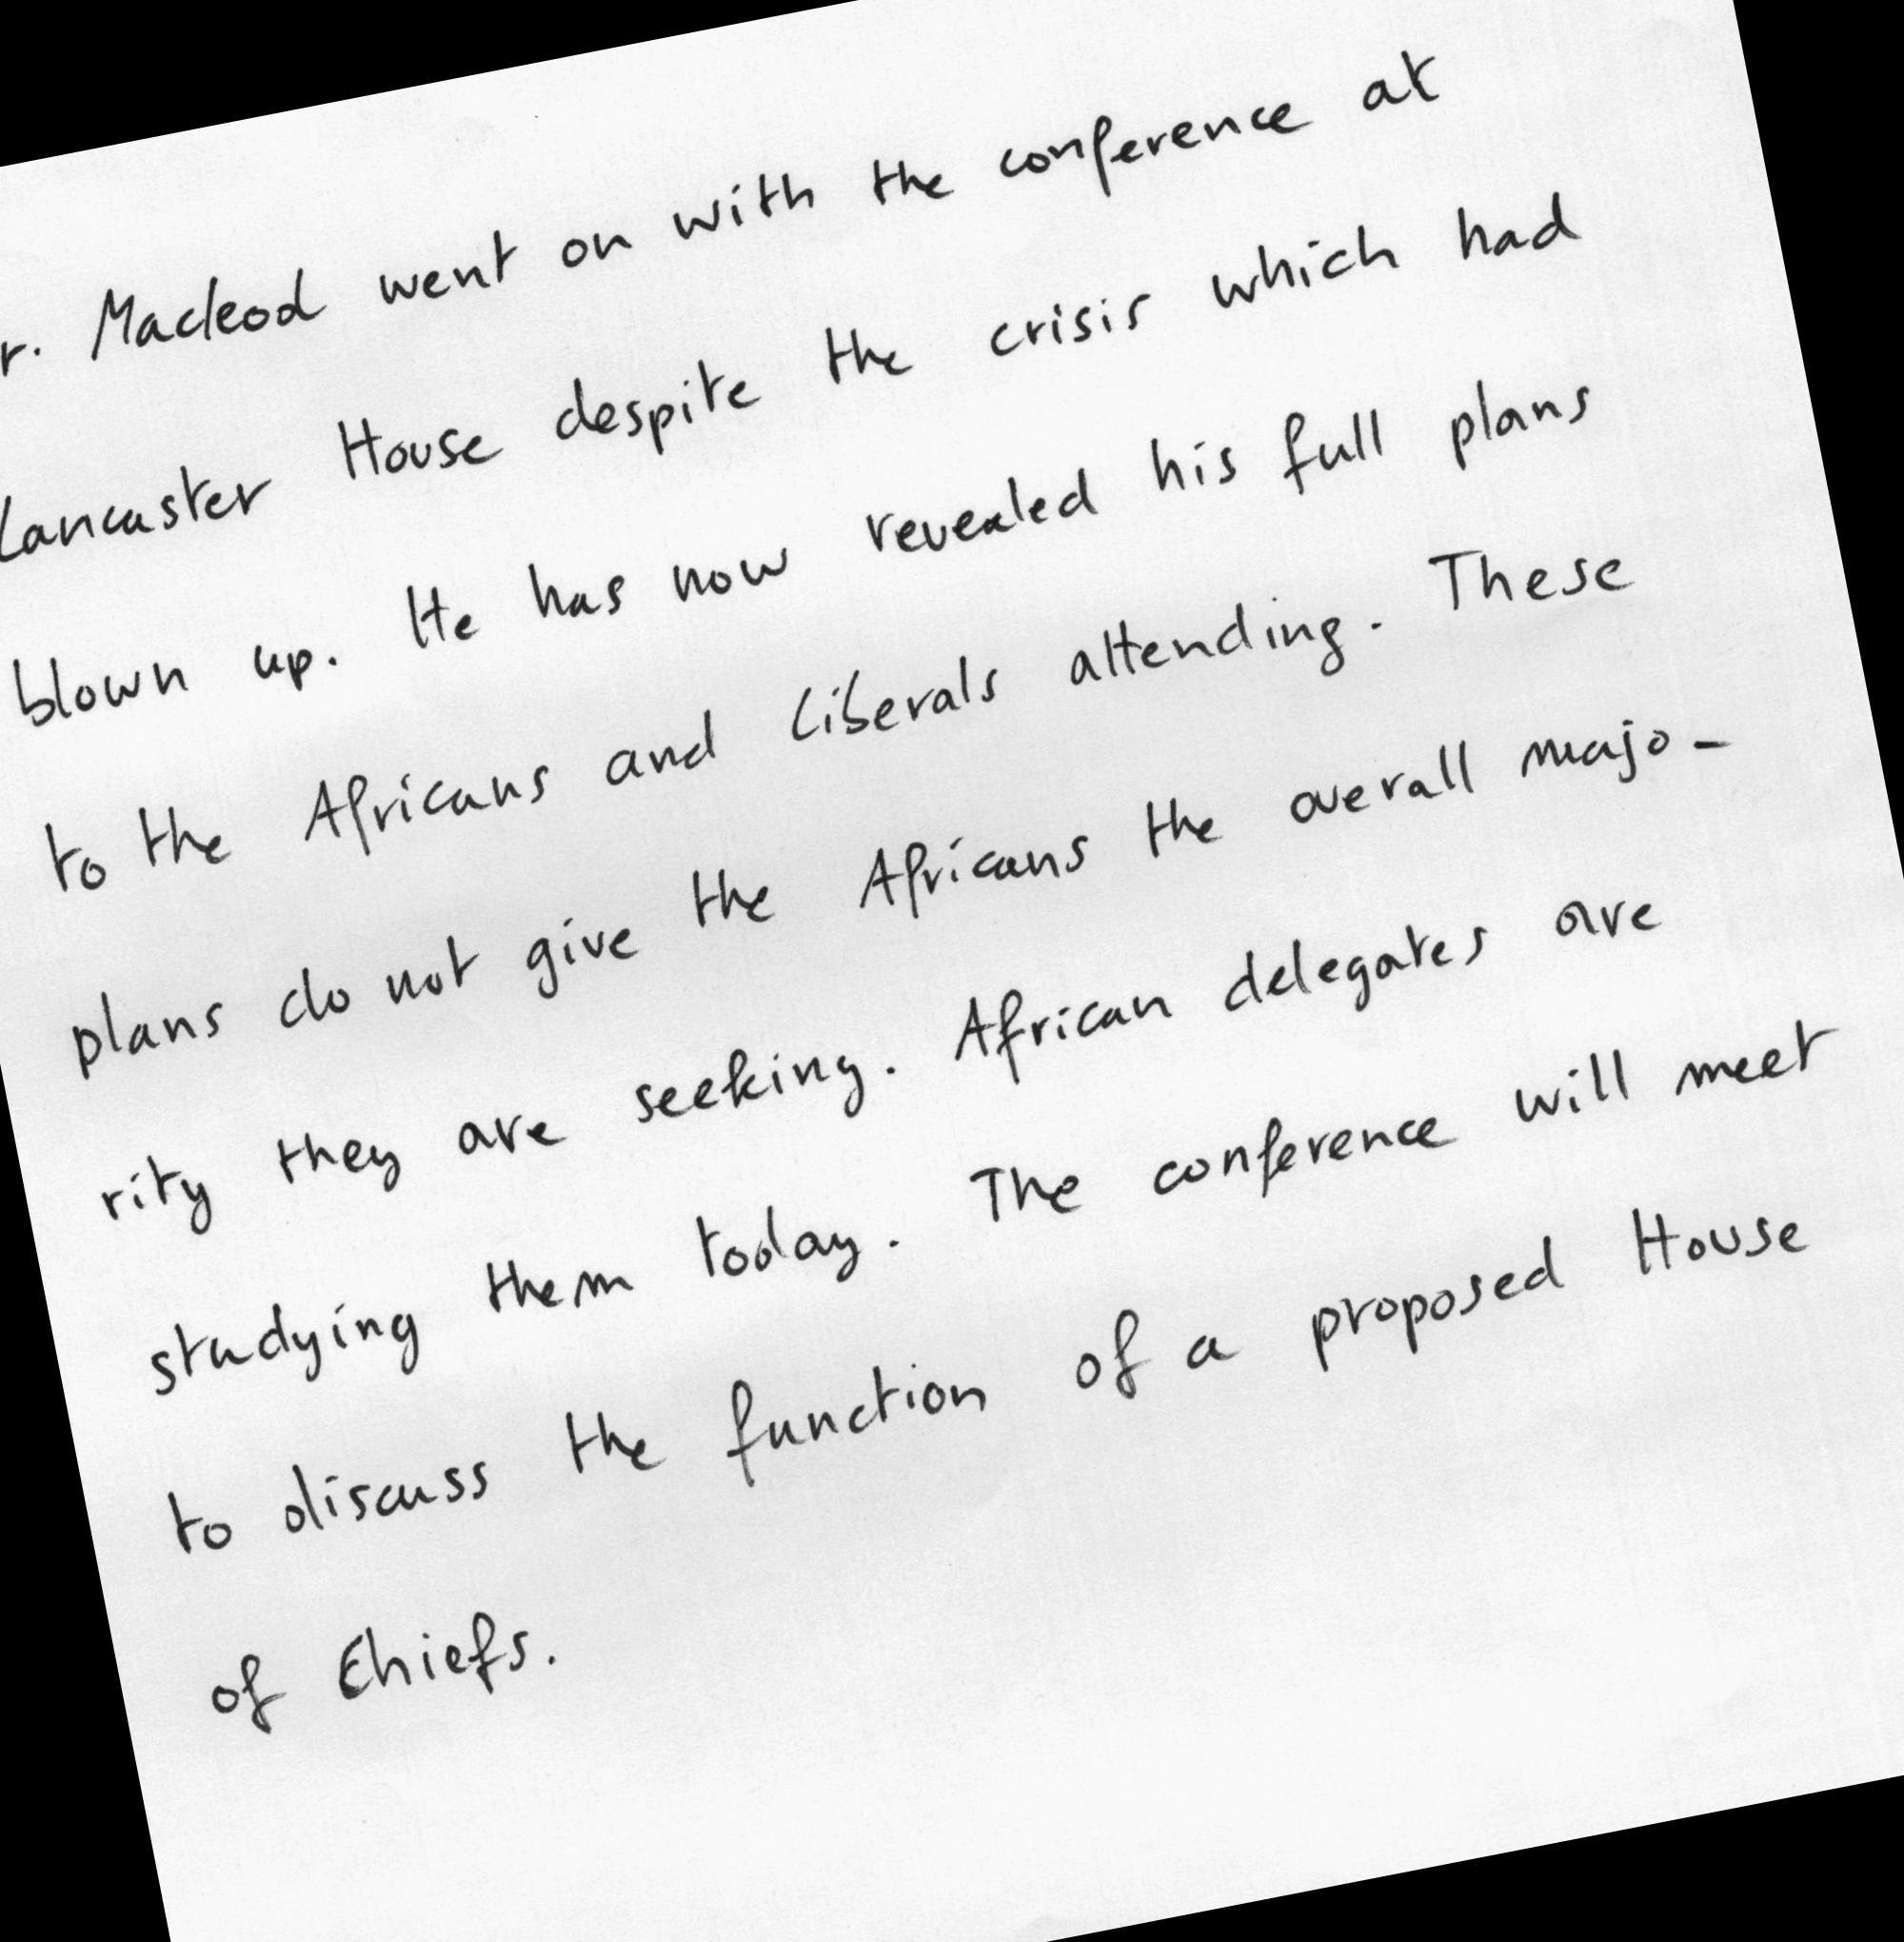 r. Macleod went on with the conference at
Lancaster House despite the crisis which had
blown up. He has now revealed his full plans
to the Africans and Liberals attending. These
plans do not give the Africans the overall majo-
rity they are seeking. African delegates are
studying them today. The conference will meet
to discuss the function of a proposed House
of Chiefs.